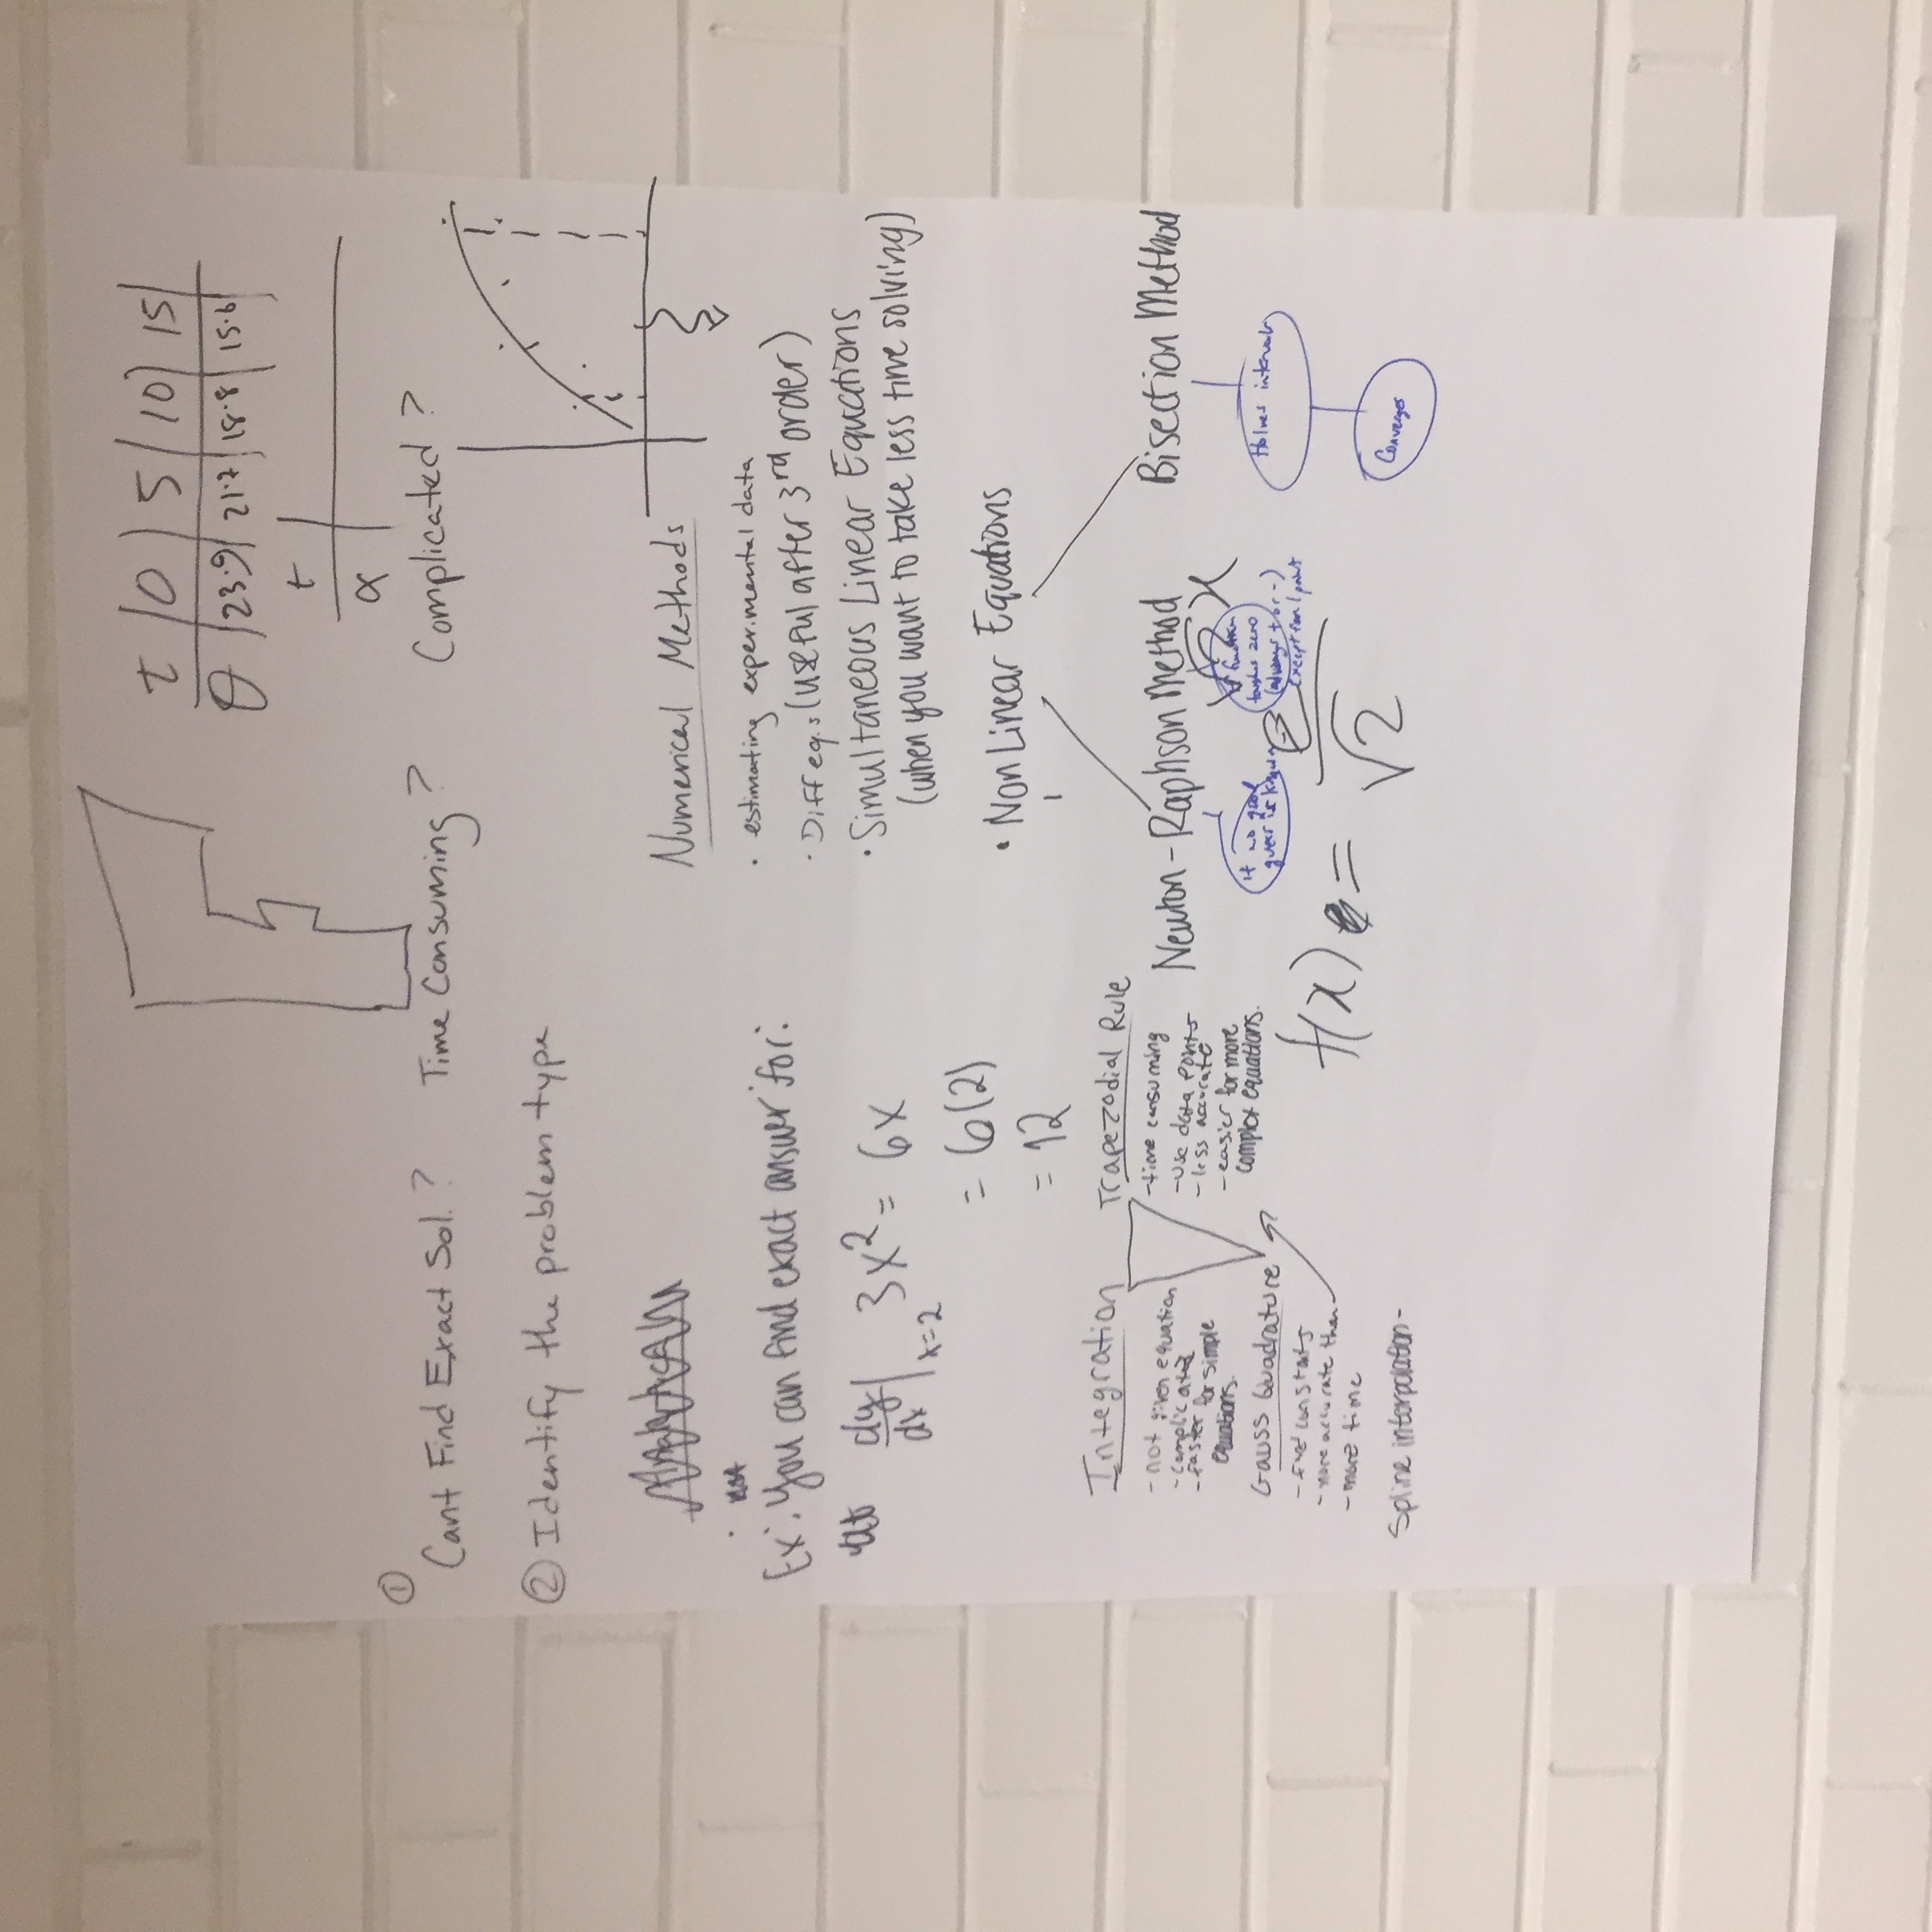 t | 0 | 5 | 10 | 15
θ | 23.9 | 21.7 | 18.8 | 15.6
t
α
①
Cant Find Exact Sol.? Time Consuming? Complicated?
② Identify the problem type
Numerical Methods
• estimating experimental data
• Diff eq.s (useful after 3rd order)
• Simultaneous Linear Equations
(when you want to take less time solving)
• Non Linear Equations
Newton-Raphson Method
Bisection Method
If no good
guess is
function
touches zero
(always + or -)
except for 1 point
Halves intervals
Converges
Ex. You can find exact answer for:
dy/dx | x=2 3x² = 6x
= 6(2)
= 12
Integration
- not given equation
- complicated
- faster for simple
equations.
Trapezodial Rule
- time consuming
- use data points
- less accurate
- easier for more
complex equations.
Gauss Quadrature
- find constants
- more accurate than
- more time
Spline interpolation-
f(x) =
√2